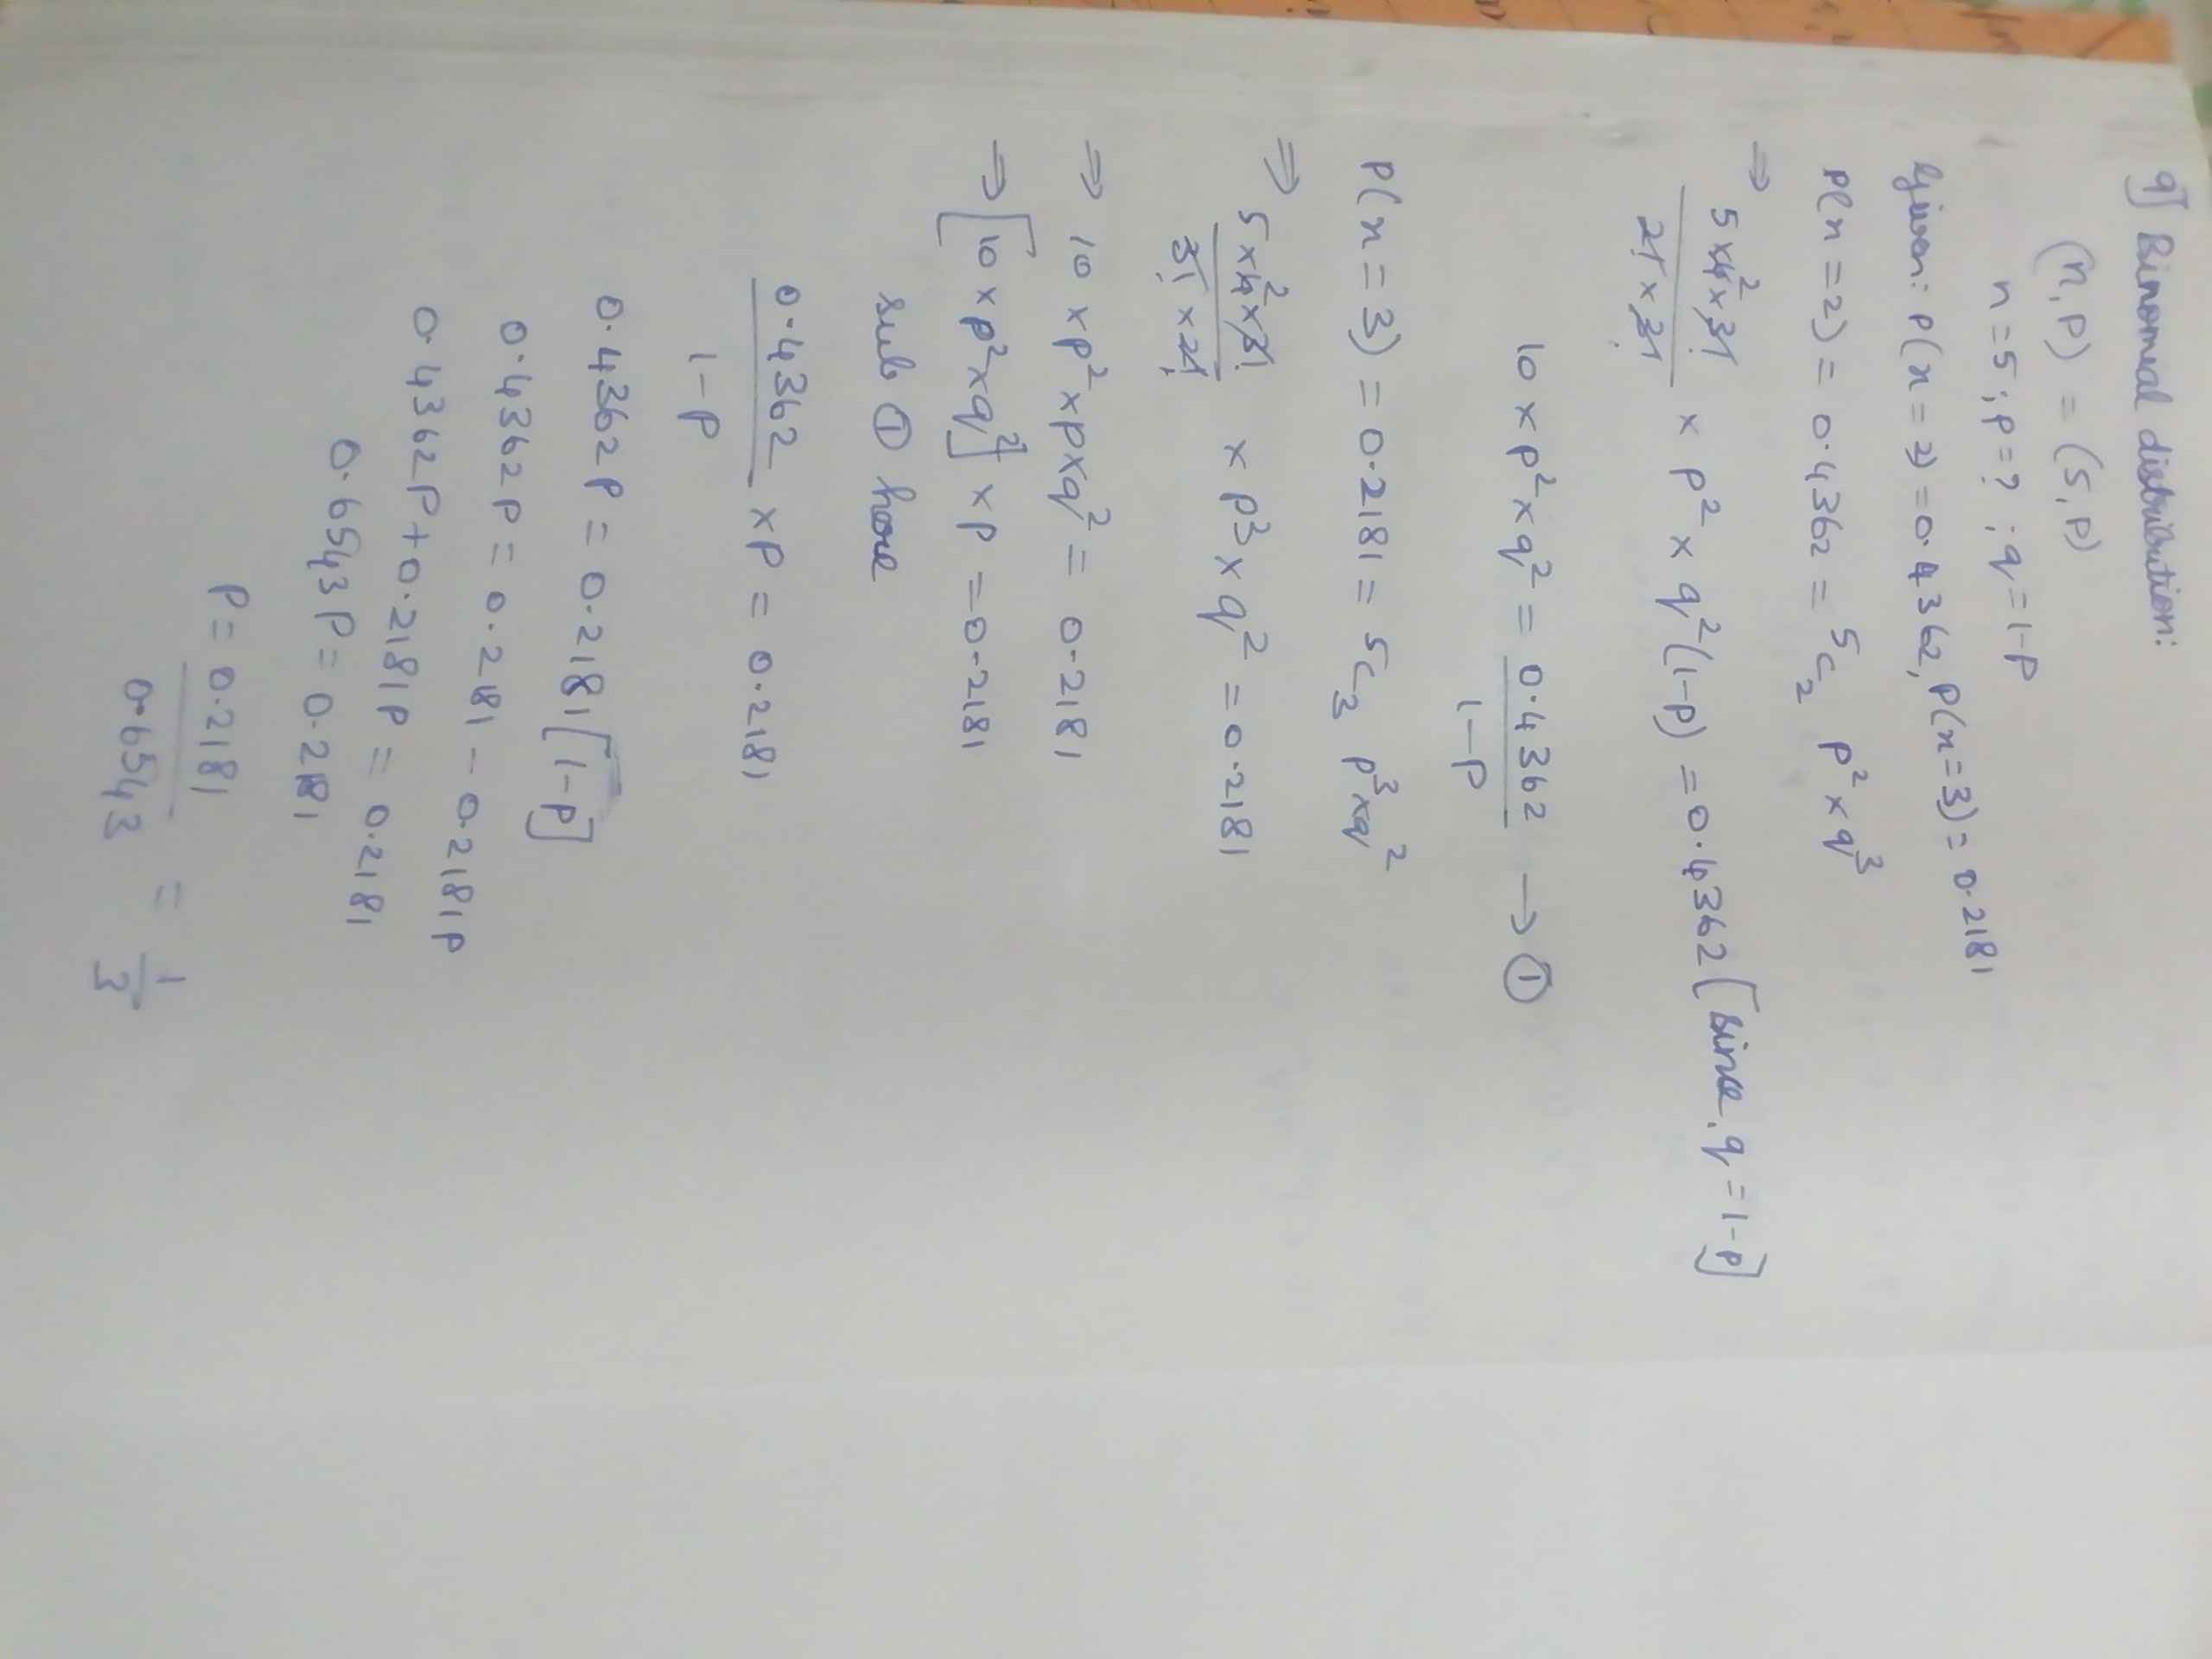 9] Binomial distribution:
(n, p) = (5, p)
n = 5 ; p = ? ; q = 1-p
Given: p(x = 2) = 0.4362, p(x=3) = 0.2181
p(x = 2) = 0.4362 = 5C2 p² × q³
⇒ 5×4²×3! / 2! × 3! × p² × q²(1-p) = 0.4362 [Since, q = 1-p]
10 × p² × q² = 0.4362 / 1-p → ①
p(x = 3) = 0.2181 = 5C3 p³ × q²
⇒ 5×4²×3! / 3! × 2! × p³ × q² = 0.2181
⇒ 10 × p² × p × q² = 0.2181
⇒ [10 × p² × q²] × p = 0.2181
sub ① here
0.4362 / 1-p × p = 0.2181
0.4362 p = 0.2181 [1-p]
0.4362 p = 0.2181 - 0.2181 p
0.4362 p + 0.2181 p = 0.2181
0.6543 p = 0.2181
p = 0.2181 / 0.6543 = 1/3